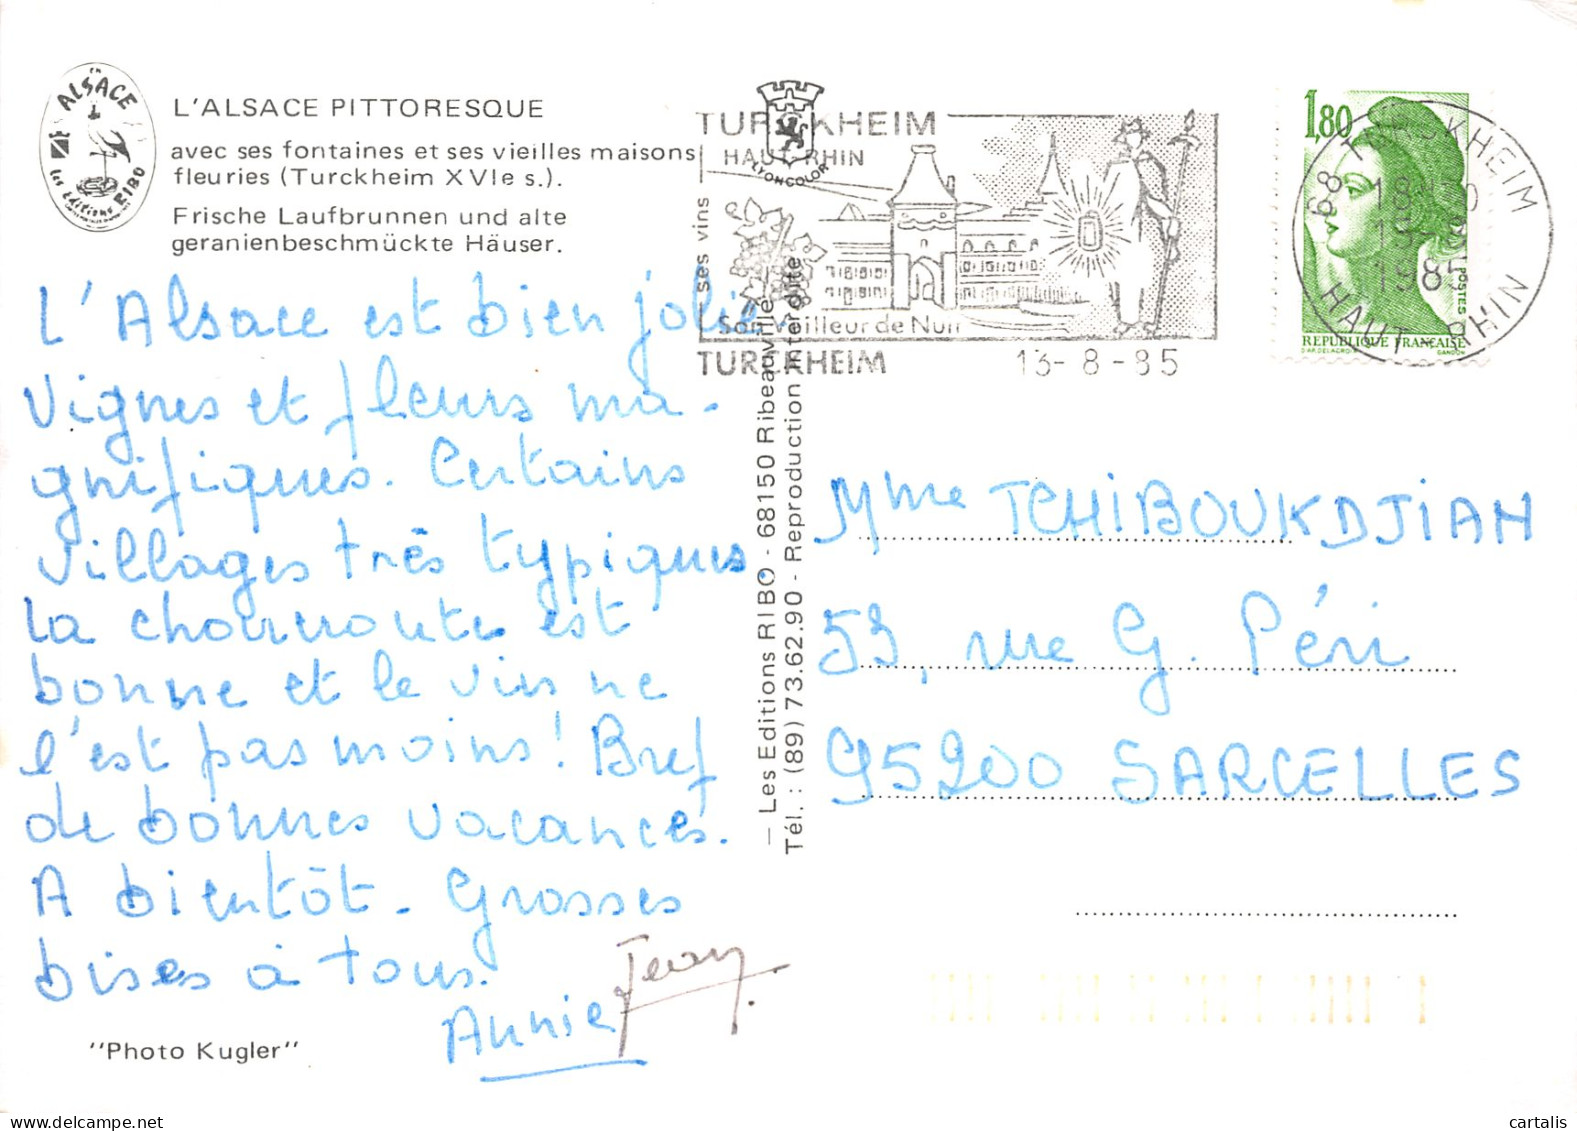 en
ALSACE
Les éditions RIBO
L'ALSACE PITTORESQUE
avec ses fontaines et ses vieilles maisons
fleuries (Turckheim XVIe s.).
Frische Laufbrunnen und alte
geranienbeschmückte Häuser.
L'Alsace est bien jolie.
Vignes et fleurs ma-
gnifiques. Certains
villages très typiques.
La choucroute est
bonne et le vin ne
l'est pas moins! Bref
de bonnes vacances.
A bientôt. Grosses
bises à tous.
Annie Jean
"Photo Kugler"
LYONCOLOR
— Les Editions RIBO - 68150 Ribeauvillé
Tél. : (89) 73.62.90 - Reproduction interdite
TURCKHEIM
HAUT-RHIN
ses vins
Son Veilleur de Nuit
TURCKHEIM 13-8-85
1,80
POSTES
REPUBLIQUE FRANÇAISE
D'AP. DELACROIX GANDON
68 TURCKHEIM
18H30
1985
HAUT RHIN
Mme TCHIBOUKDJIAN
53, rue G. Péri
95200 SARCELLES
cartalis